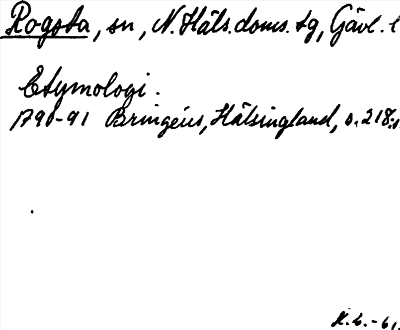 Rogsta, sn, N. Häls. doms. tg, Gävl. l
Etymologi.
1790-91 Bringéus, Hälsingland, s. 218.
K.L. -61.